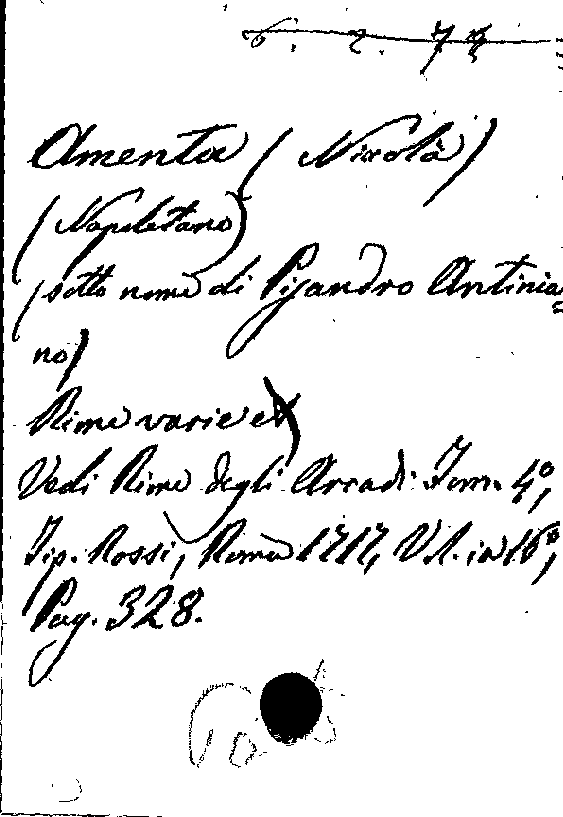 6. 2. 73
Amenta (Nicolò)
(Napoletano)
(sotto nome di Pisandro Antinia
no)
Rime varie
Vedi Rime degli Arcadi. Tom. 4º,
Tip. Rossi, Roma 1717, V 1. in 16º,
Pag. 328.